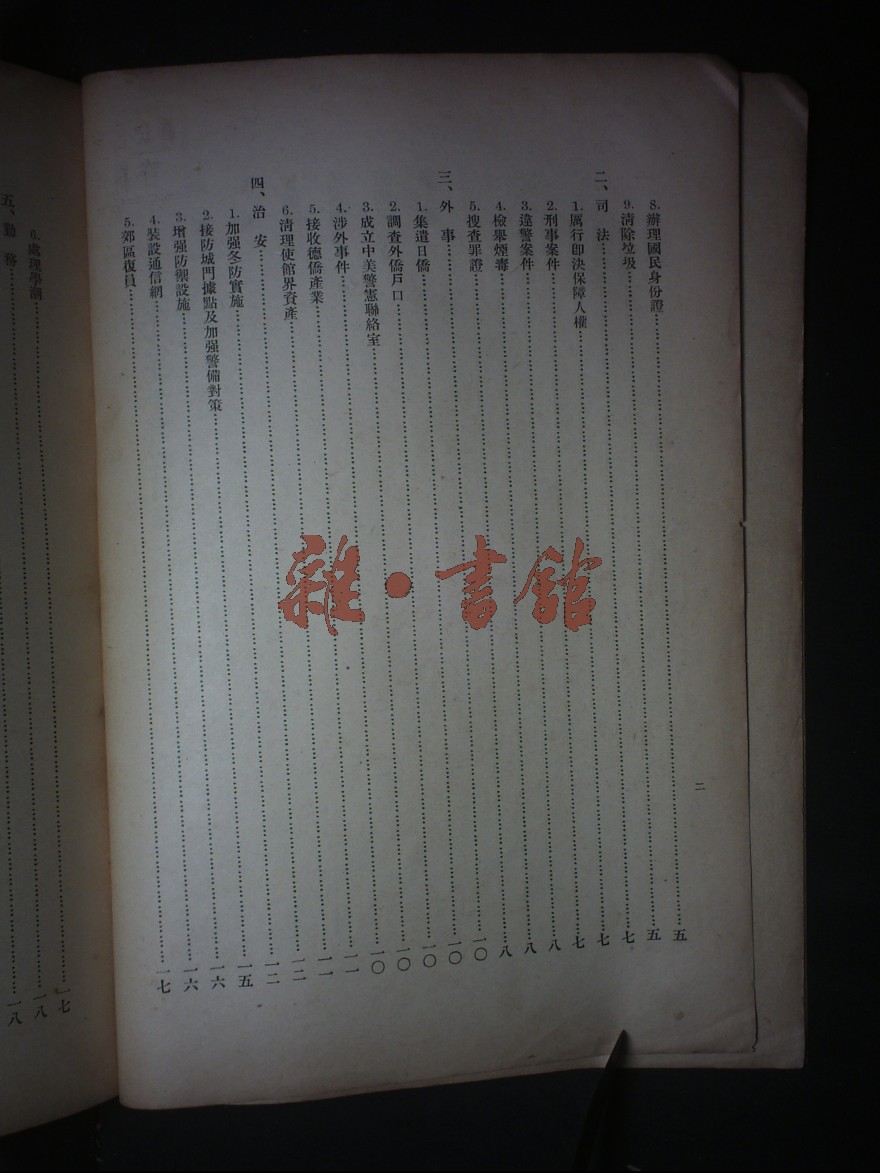 8.辦理國民身份證……五
9.清除垃圾……五
二、司法……七
1.厲行即決保障人權……七
2.刑事案件……七
3.違警案件……八
4.檢舉煙毒……八
5.搜查罪證……八
三、外事……一〇
1.集遣日僑……一〇
2.調查外僑戶口……一〇
3.成立中美警憲聯絡室……一〇
4.涉外事件……一〇
5.接收德僑產業……一一
6.清理使館界資產……一一
四、治安……一二
1.加强冬防實施……一二
2.接防城門據點及加强警備對策……一五
3.增强防禦設施……一六
4.裝設通信網……一六
5.郊區復員……一七
二
6.處理學潮……一七
五、勤務……一八
一八
雜·書館